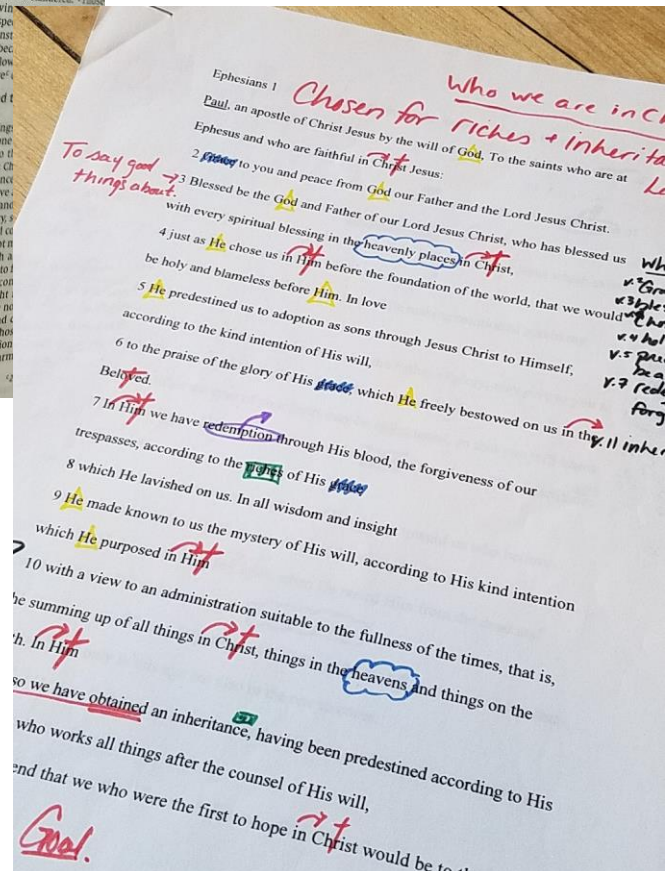 Ephesians 1
Who we are in C
Chosen for riches + inherita
Paul, an apostle of Christ Jesus by the will of God, To the saints who are at
Ephesus and who are faithful in Christ Jesus:
2 to you and peace from God our Father and the Lord Jesus Christ.
To say good
things about.
3 Blessed be the God and Father of our Lord Jesus Christ, who has blessed us
with every spiritual blessing in the heavenly places in Christ,
4 just as He chose us in Him before the foundation of the world, that we would
be holy and blameless before Him. In love
5 He predestined us to adoption as sons through Jesus Christ to Himself,
according to the kind intention of His will,
6 to the praise of the glory of His grace, which He freely bestowed on us in the
Beloved.
7 In Him we have redemption through His blood, the forgiveness of our
trespasses, according to the riches of His grace
8 which He lavished on us. In all wisdom and insight
9 He made known to us the mystery of His will, according to His kind intention
which He purposed in Him
10 with a view to an administration suitable to the fullness of the times, that is,
he summing up of all things in Christ, things in the heavens and things on the
h. In Him
so we have obtained an inheritance, having been predestined according to His
who works all things after the counsel of His will,
end that we who were the first to hope in Christ would be to
Goal.
Wh
v.2 Gra
v.3 bles
v.4 hol
v.5
v.7 rede
forg
v.11 inher